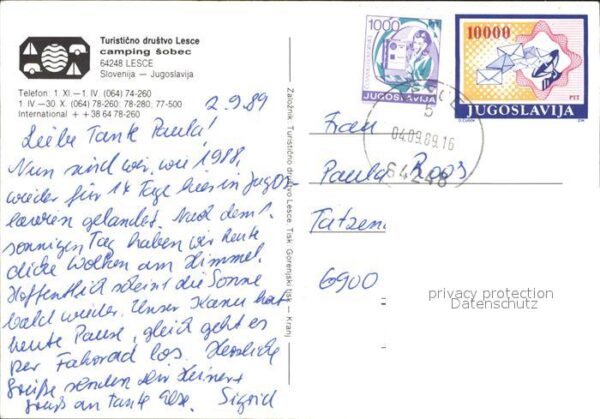 Turistično društvo Lesce
camping šobec
64248 LESCE
Slovenija — Jugoslavija
Telefon: 1. XI.—1. IV. (064) 74-260
1. IV.—30. X. (064) 78-260; 78-280; 77-500
International ++38 64 78-260
2.9.89
Liebe Tante Paula!
Nun sind wir, wie 1988,
wieder für 14 Tage hier in Jugos-
lawien gelandet. Nach dem 1.
sonnigen Tag haben wir heute
dicke Wolken am Himmel.
Hoffentlich scheint die Sonne
bald wieder. Unser Kanu hat
heute Pause, gleich geht es
per Fahrrad los. Herzliche
Grüße senden Dir Heiner +
Gruß an Tante Else. Sigrid
Založnik: Turistično društvo Lesce, Tisk: Gorenjski tisk — Kranj
1000
JUGOSLAVIJA
10000
PTT
JUGOSLAVIJA
04.09.89.16
64248
Frau
Paula Roos
Tatzen
6900
privacy protection
Datenschutz